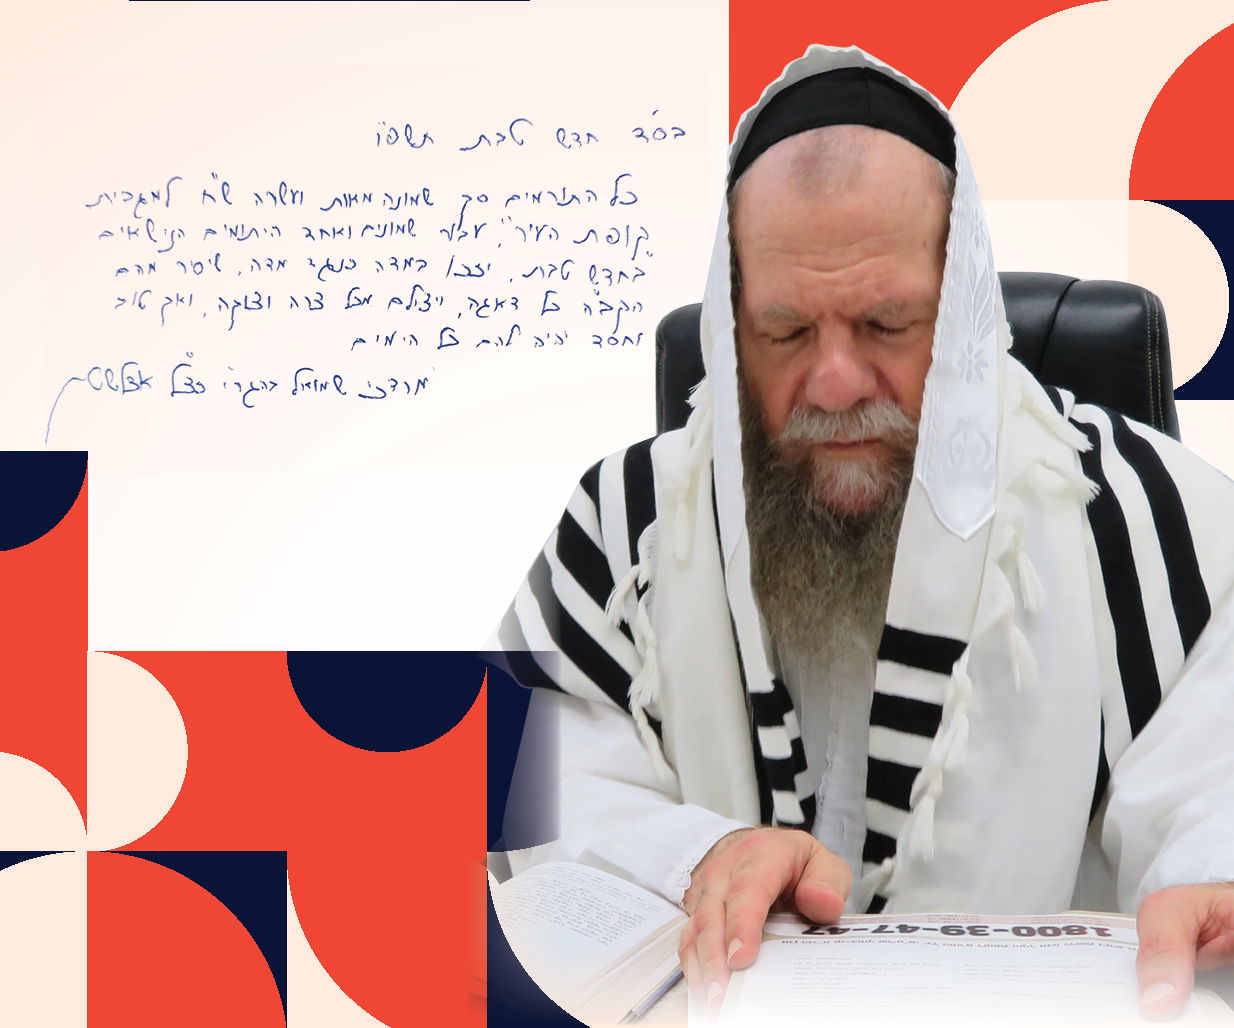 בס"ד חדש טבת תשפ"ו
כל התורמים סך שמונה מאות ועשרה ש"ח למגבית
"קופת העיר", עבור שמונים ואחד היתומים הנישאים
בחדש טבת, יזכו במדה כנגד מדה, שיסיר מהם
הקב"ה כל דאגה, ויצילם מכל צרה וצוקה, ואך טוב
וחסד יהיה להם כל הימים
מרדכי שמואל בהגר"י זצ"ל
1800-39-47-47